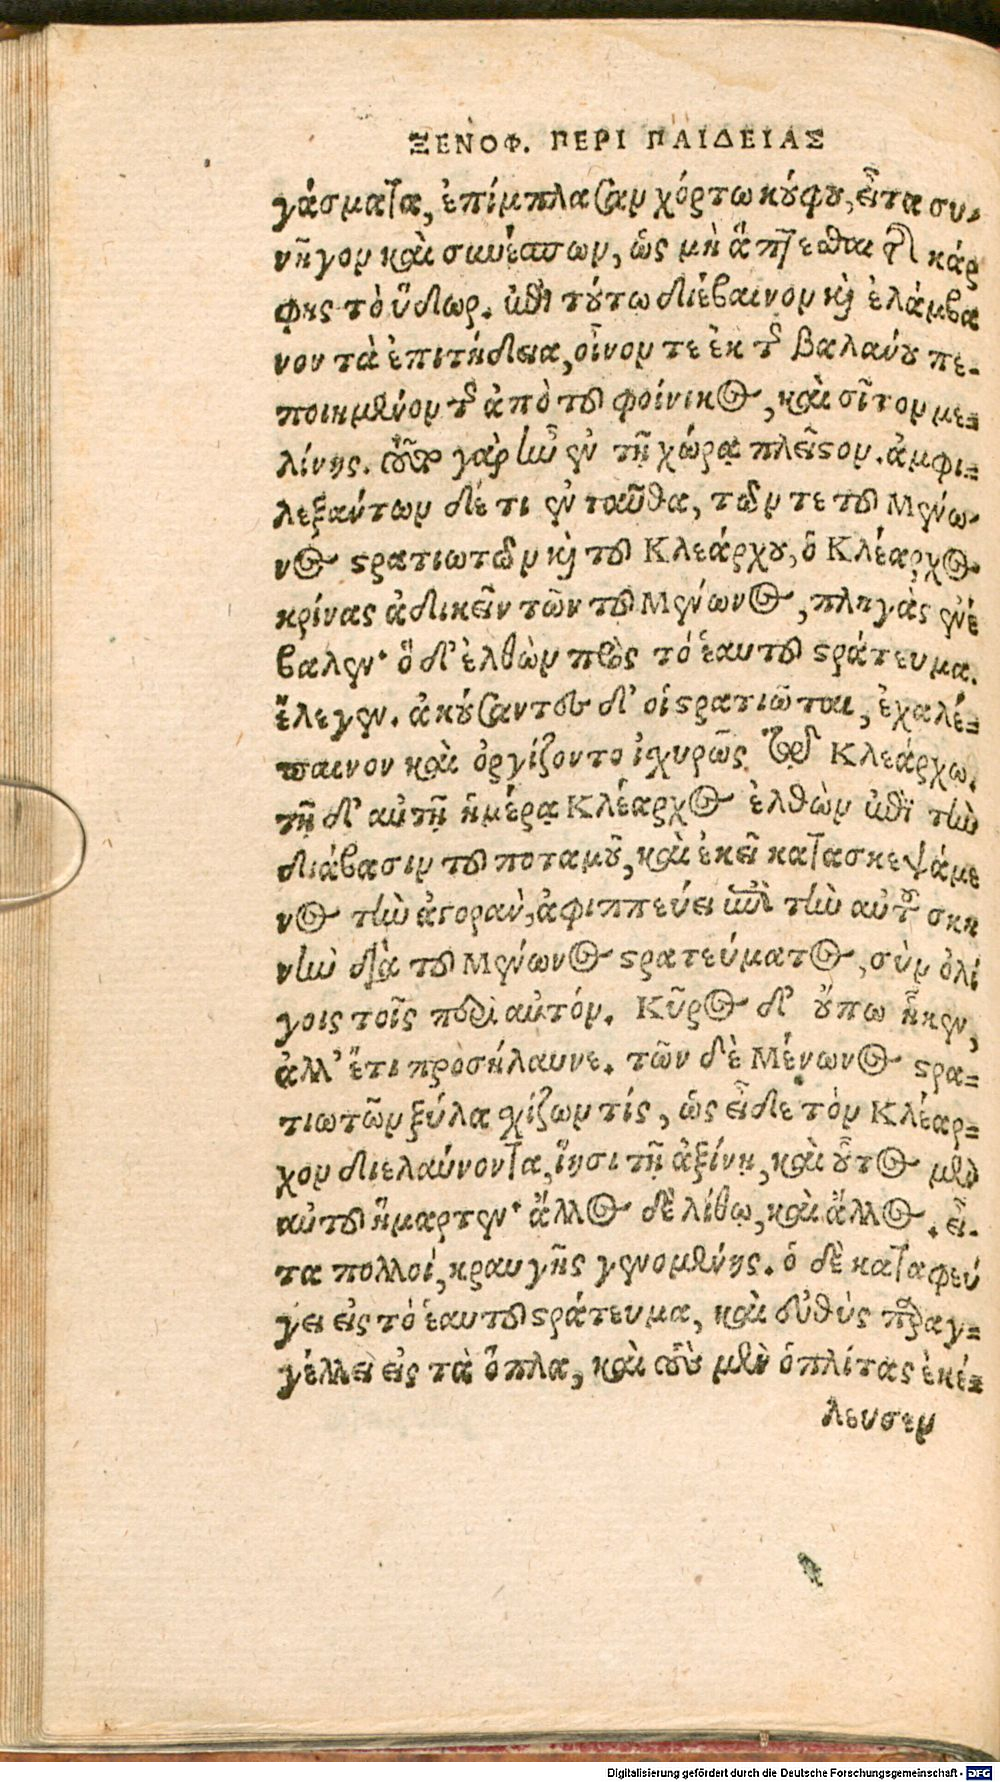 ΞΕΝΟΦ. ΠΕΡΙ ΠΑΙΔΕΙΑΣ
γάσματα, ἐπίμπλασαν χόρτω κούφου, εἶτα συν-
νῆγον καὶ συνέσπων, ὡς μὴ ἅπτεσθαι τῆς κάρ
φης τὸ ὕδωρ. ἐπὶ τούτω διέβαινον καὶ ἐλάμβα
νον τὰ ἐπιτήδεια, οἶνον τε ἐκ τῆς βαλάνου πε-
ποιημένον τῆς ἀπὸ τοῦ φοίνικος, καὶ σῖτον με=
λίνης. τοῦτο γὰρ ἦν ἐν τῇ χώρᾳ πλεῖστον. ἀμφι=
λεξάντων δέ τι ἐνταῦθα, τῶν τε τοῦ Μένω-
νος στρατιωτῶν καὶ τοῦ Κλεάρχου, ὁ Κλέαρχος
κρίνας ἀδικεῖν τῶν τοῦ Μένωνος, πληγὰς ἐνέ
βαλεν· ὃ δ' ἐλθὼν πρὸς τὸ ἑαυτοῦ στράτευμα.
ἔλεγεν. ἀκούσαντες δ' οἱ στρατιῶται, ἐχαλέ=
παινον καὶ ὀργίζοντο ἰχυρῶς τῷ Κλεάρχω.
τῇ δ' αὐτῇ ἡμέρᾳ Κλέαρχος ἐλθὼν ἐπὶ τὴν
διάβασιν τοῦ ποταμοῦ, καὶ ἐκεῖ κατασκεψάμε
νος τὴν ἀγορὰν, ἀφιππεύει ἐπὶ τὴν αὑτοῦ σκη
νὴν διὰ τοῦ Μένωνος στρατεύματος, σὺν ὀλί
γοις τοῖς περὶ αὐτόν. Κῦρος δ' οὔπω ἧκεν,
ἀλλ' ἔτι προσήλαυνε. τῶν δὲ Μένωνος στρα=
τιωτῶν ξύλα σχίζων τίς, ὡς εἶδε τὸν Κλέαρ=
χον διελαύνοντα, ἵησι τῇ ἀξίνῃ, καὶ οὗτος μὲν
αὐτοῦ ἥμαρτεν· ἄλλος δὲ λίθῳ, καὶ ἄλλος. εἶ-
τα πολλοί, κραυγῆς γενομένης. ὁ δὲ καταφεύ
γει εἰς τὸ ἑαυτοῦ στράτευμα, καὶ εὐθὺς παραγ=
γέλλει εἰς τὰ ὅπλα, καὶ τοὺς μὲν ὁπλίτας ἐκέ=
λευσεν
Digitalisierung gefördert durch die Deutsche Forschungsgemeinschaft - DFG